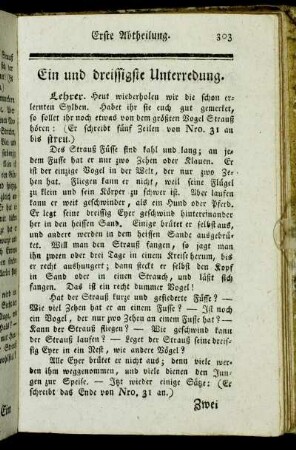 Erste Abtheilung. 303
Ein und dreissigste Unterredung.
Lehrer. Heut wiederholen wir die schon er-
lernten Sylben. Habet ihr sie euch gut gemerket,
so sollet ihr noch etwas von dem größten Vogel Strauß
hören: (Er schreibt fünf Zeilen von Nro. 31 an
bis streil.)
Des Strauß Füsse sind kahl und lang; an je-
dem Fusse hat er nur zwo Zehen oder Klauen. Er
ist der einzige Vogel in der Welt, der nur zwo Ze-
hen hat. Fliegen kann er nicht, weil seine Flügel
zu klein und sein Körper zu schwer ist. Aber laufen
kann er weit geschwinder, als ein Hund oder Pferd.
Er legt seine dreissig Eyer geschwind hintereinander
her in den heissen Sand. Einige brütet er selbst aus,
und andere werden in dem heissen Sande ausgebrü-
tet. Will man den Strauß fangen, so jagt man
ihn zween oder drei Tage in einem Kreis herum, bis
er recht aushungert; dann steckt er selbst den Kopf
in Sand oder in einen Strauch, und läßt sich
fangen. Das ist ein recht dummer Vogel!
Hat der Strauß kurze und gefiederte Füsse? —
Wie viel Zehen hat er an einem Fusse? — Ist noch
ein Vogel, der nur zwo Zehen an einem Fusse hat? —
Kann der Strauß fliegen? — Wie geschwind kann
der Strauß laufen? — Leget der Strauß seine dreis-
sig Eyer in ein Nest, wie andere Vögel?
Alle Eyer brütet er nicht aus; denn viele wer-
den ihm weggenommen, und viele dienen den Jun-
gen zur Speise. — Itz wieder einige Sätze: (Er
schreibt das Ende von Nro, 31 an.)
Zwei